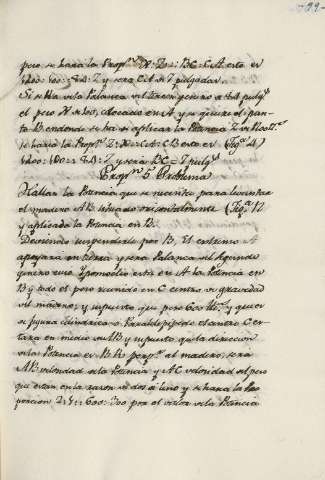 99
pero se hara la Propⁿ. X: Z:: BC: CA esto es
1200: 600:: 8: Z y sera
Si se Ha vela Palanca del tercer genero a 8 A pulgˢ
el peso X colocado en A, y se quiere el pun-
to B endonde se ha de aplicar la Potencia Z
se haria la Propⁿ. Z: X:: CA: CB esto es (Figª. 4)
y sera BC = 7 pulgˢ
Propⁿ. 5 Problema
Hallar la Potencia que se necesita para levantar
el madero AB situado orisontalmente (Figª.
y aplicada la Potencia en B.
Deviendo suspenderse por B, El extremo A
apoyara en tierra y sera Palanca del segundo
genero cuio Ypomoclio esta en A la Potencia en
B y todo el peso reunido en C centro de gravedad
del madero; y supuesto que pese 600 y que es
de figura cilindrica o Paralelepipedo el centro C es-
tara en medio de AB y supuesto que la direccion
de la Potencia es BR perpʳ. al madero, sera
AB velosidad de la Potencia y AC velosidad del peso
que estan en la razon de dos a uno y se hara la Pro
porcion 2: 1:: 600: 300 por el valor de la Potencia